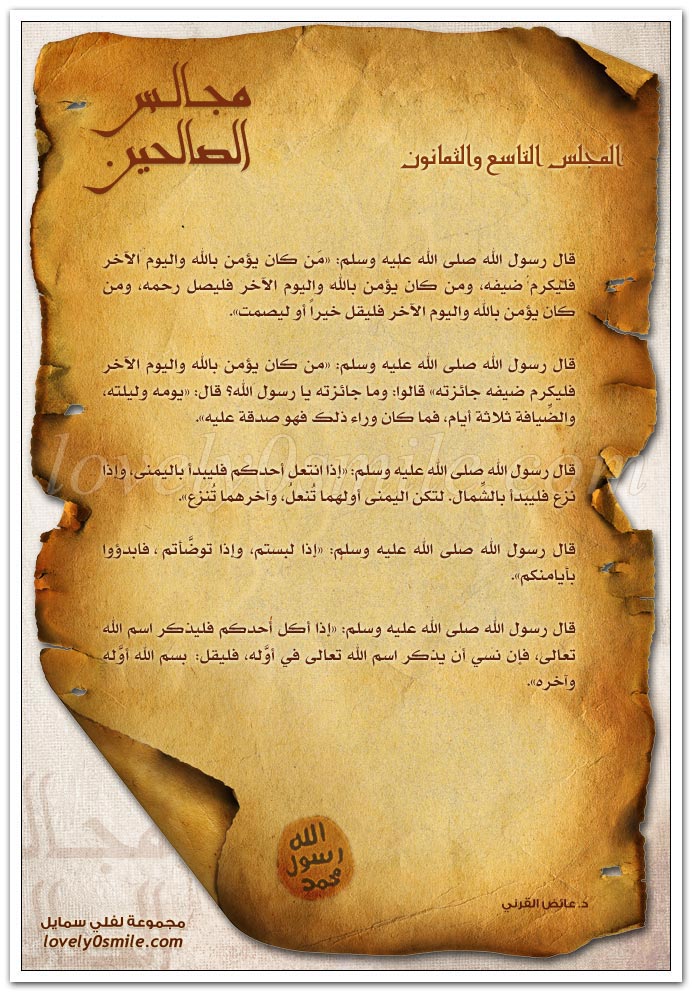 مجالس
الصالحين
المجلس التاسع والثمانون
قال رسول الله صلى الله عليه وسلم: «مَن كان يؤمن بالله واليوم الآخر
فليكرم ضيفه، ومن كان يؤمن بالله واليوم الآخر فليصل رحمه، ومن
كان يؤمن بالله واليوم الآخر فليقل خيراً أو ليصمت».
قال رسول الله صلى الله عليه وسلم: «من كان يؤمن بالله واليوم الآخر
فليكرم ضيفه جائزته» قالوا: وما جائزته يا رسول الله؟ قال: «يومه وليلته،
والضِّيافة ثلاثة أيام، فما كان وراء ذلك فهو صدقة عليه».
قال رسول الله صلى الله عليه وسلم: «إذا انتعل أحدكم فليبدأ باليمنى، وإذا
نزع فليبدأ بالشِّمال. لتكن اليمنى أولهما تُنعلُ، وآخرهما تُنزع».
قال رسول الله صلى الله عليه وسلم: «إذا لبستم، وإذا توضَّأتم، فابدؤوا
بأيامنكم».
قال رسول الله صلى الله عليه وسلم: «إذا أكل أحدكم فليذكر اسم الله
تعالى، فإن نسي أن يذكر اسم الله تعالى في أوَّله، فليقل: بسم الله أوَّله
وآخره».
lovely0smile.com
الله
رسول
محمد
د.عائض القرني
مجموعة لفلي سمايل
lovely0smile.com
مجالس
الصالحين